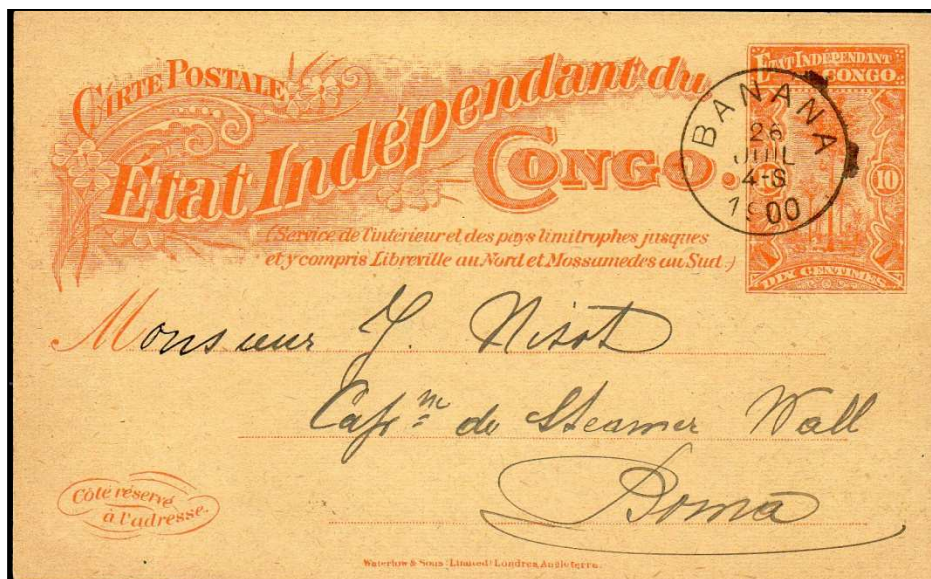 CARTE POSTALE
Etat Indépendant du
CONGO.
(Service de l'intérieur et des pays limitrophes jusques
et y compris Libreville au Nord et Mossamedes au Sud.)
ETAT INDÉPENDANT
DU CONGO.
10
DIX CENTIMES
BANANA
26
JUIL
4-S
1900
Monsieur J. Nisot
Cap.ne de Steamer Wall
Boma
Côté réservé
à l'adresse.
Waterlow & Sons Limited Londres Angleterre.